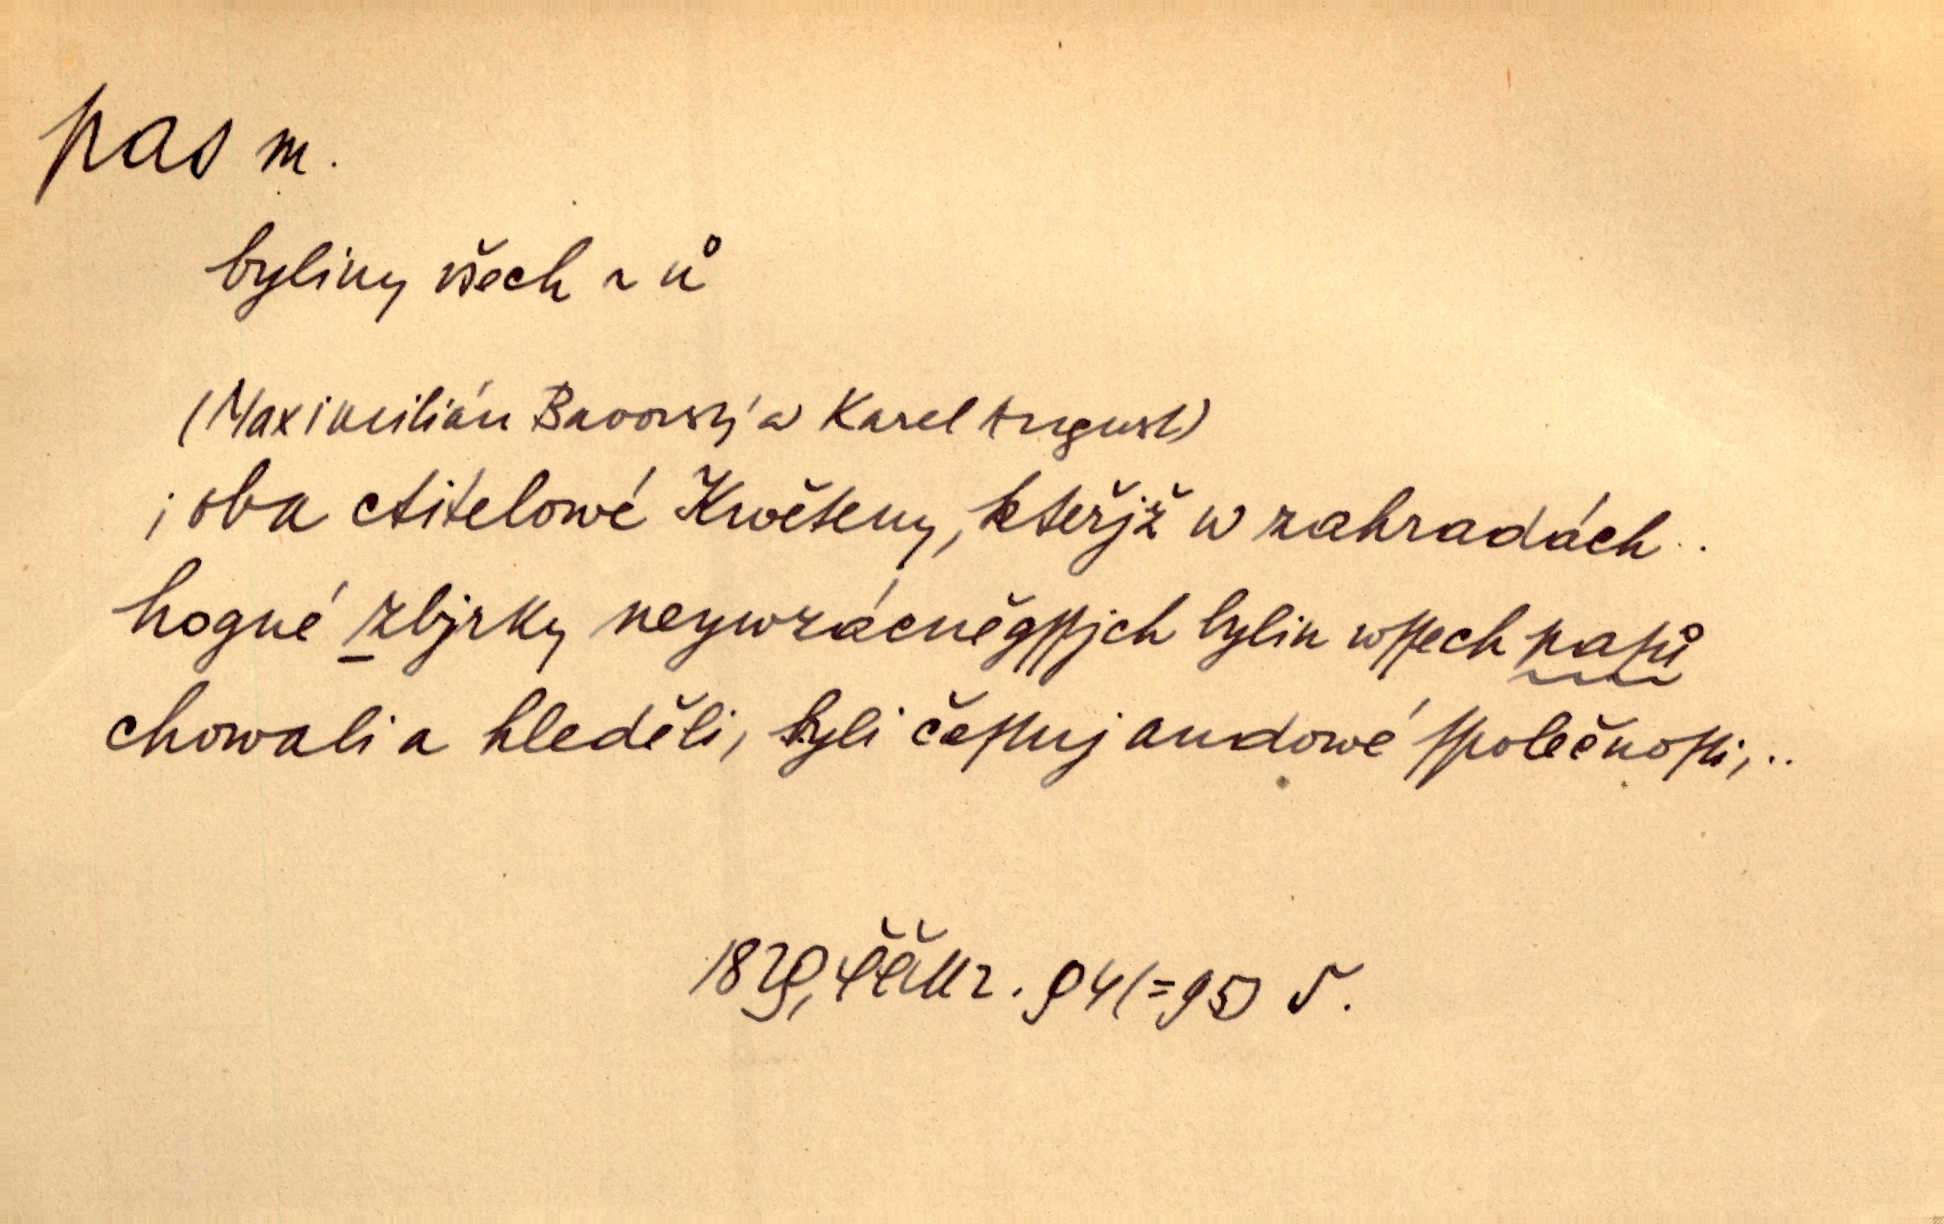 pas m.
byliny všech ~ ů
(Maximilián Bavorský a Karel August)
; oba ctitelowé Kwěteny, kteřjž w zahradách ..
hogné zbjrky neywzácněgſſjch bylin wſſech paſů
chowali a hleděli, byli čeſtnj audowé ſpolečnoſti, ..
94 (=95)